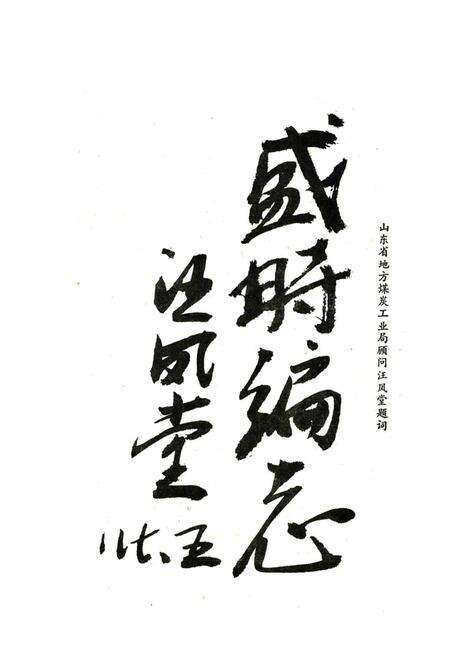 山东省地方煤炭工业局顾问汪凤堂题词
盛時编志
汪凤堂
八七.五